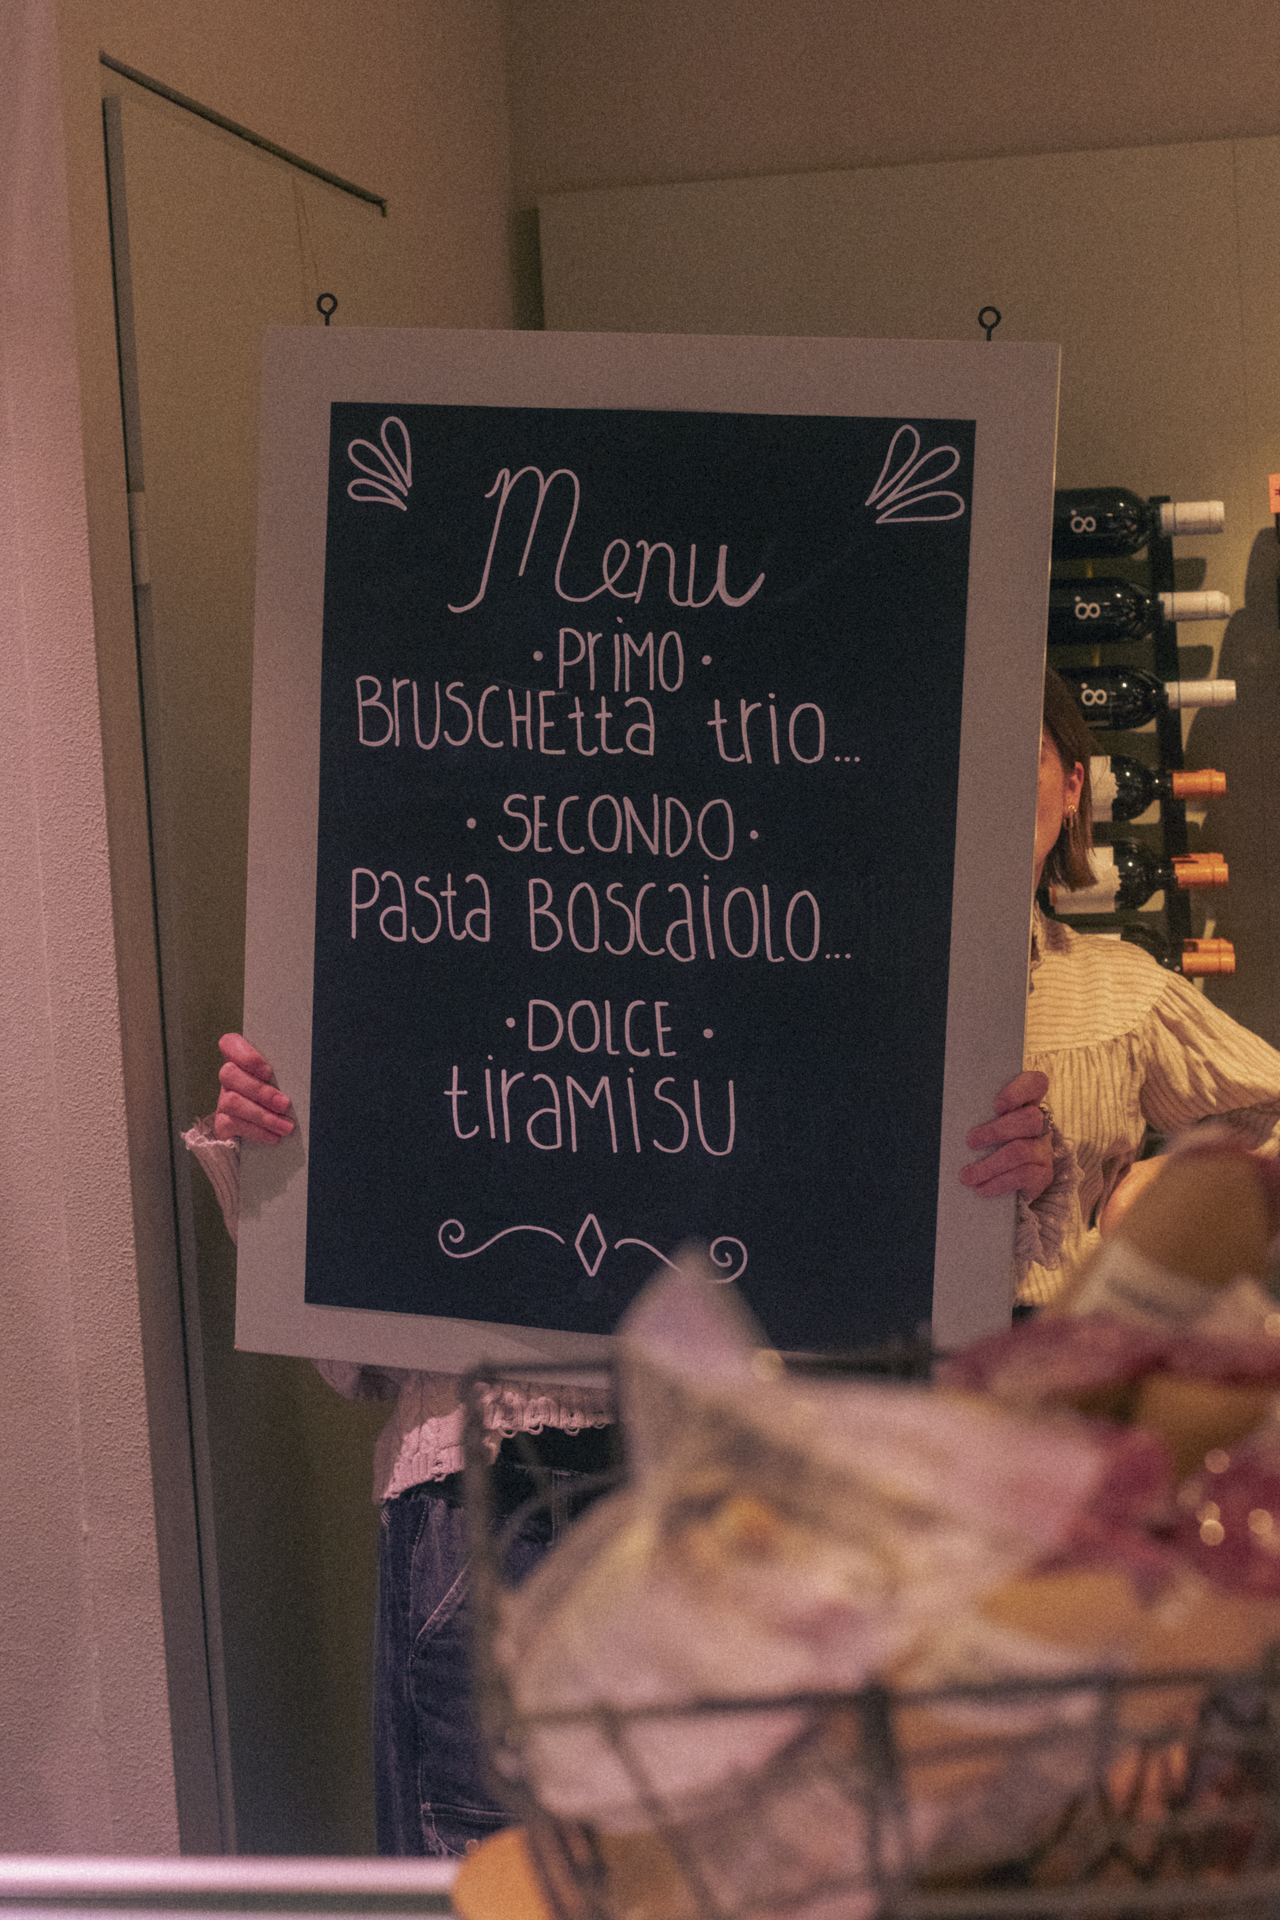 Menu
· PriMO ·
BrUSCHEtta trio...
· SECONDO ·
Pasta BOSCaiOLO...
· DOLCE ·
tiraMiSU
8.
8.
8.